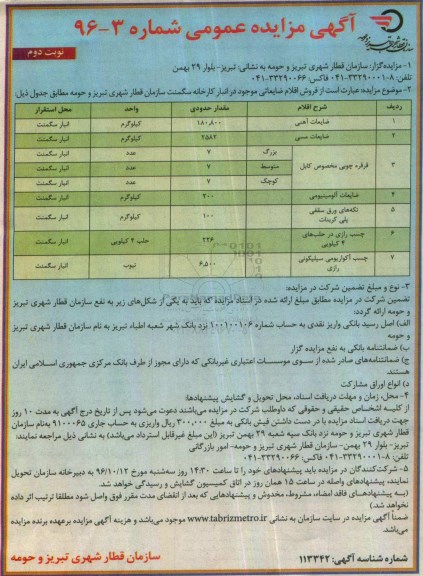 آگهی مزایده عمومی شماره ۳-۹۶
نوبت دوم
۱- مزایده‌گزار: سازمان قطار شهری تبریز و حومه به نشانی: تبریز- بلوار ۲۹ بهمن
تلفن: ۸-۳۳۲۹۰۰۰۱-۰۴۱ فاکس: ۳۳۲۹۰۰۶۶-۰۴۱
۲- موضوع مزایده: عبارت است از فروش اقلام ضایعاتی موجود در انبار کارخانه سگمنت سازمان قطار شهری تبریز و حومه مطابق جدول ذیل:
ردیف شرح اقلام مقدار حدودی واحد محل استقرار
۱ ضایعات آهنی ۱۸۰,۸۰۰ کیلوگرم انبار سگمنت
۲ ضایعات مسی ۲۵۸۲ کیلوگرم انبار سگمنت
۳ قرقره چوبی مخصوص کابل بزرگ ۷ عدد انبار سگمنت
متوسط ۷ عدد انبار سگمنت
کوچک ۷ عدد انبار سگمنت
۴ ضایعات آلومینیومی ۲۰۰ کیلوگرم انبار سگمنت
۵ تکه‌های ورق سقفی پلی کربنات ۱۰۰ کیلوگرم انبار سگمنت
۶ چسب رازی در حلب‌های ۴ کیلویی ۲۲۶ حلب ۴ کیلویی انبار سگمنت
۷ چسب آکواریومی سیلیکونی رازی ۶,۵۰۰ تیوب انبار سگمنت
۳- نوع و مبلغ تضمین شرکت در مزایده:
تضمین شرکت در مزایده مطابق مبلغ ارائه شده در اسناد مزایده که باید به یکی از شکل‌های زیر به نفع سازمان قطار شهری تبریز و حومه ارائه گردد:
الف) اصل رسید بانکی واریز نقدی به حساب شماره ۱۰۰۱۰۰۱۰۶ نزد بانک شهر شعبه اطباء تبریز به نام سازمان قطار شهری تبریز و حومه
ب) ضمانتنامه بانکی به نفع مزایده گزار
ج) ضمانتنامه‌های صادر شده از سوی موسسات اعتباری غیربانکی که دارای مجوز از طرف بانک مرکزی جمهوری اسلامی ایران هستند.
د) انواع اوراق مشارکت
۴- محل، زمان و مهلت دریافت اسناد، محل تحویل و گشایش پیشنهادها:
از کلیه اشخاص حقیقی و حقوقی که داوطلب شرکت در مزایده می‌باشند دعوت می‌شود پس از تاریخ درج آگهی به مدت ۱۰ روز جهت دریافت اسناد مزایده با در دست داشتن فیش بانکی به مبلغ ۳۰۰,۰۰۰ ریال واریزی به حساب جاری ۹۱۰۰۰۶۵ به‌نام سازمان قطار شهری تبریز و حومه نزد بانک سپه شعبه ۲۹ بهمن تبریز (این مبلغ غیرقابل استرداد می‌باشد) به نشانی ذیل مراجعه نمایند:
تبریز- بلوار ۲۹ بهمن- سازمان قطار شهری تبریز و حومه- امور بازرگانی
تلفن: ۸-۳۳۲۹۰۰۰۱-۰۴۱ فاکس: ۳۳۲۹۰۰۶۶-۰۴۱
۵- شرکت‌کنندگان در مزایده باید پیشنهادهای خود را تا ساعت ۱۴:۳۰ روز سه‌شنبه مورخ ۹۶/۱۰/۱۲ به دبیرخانه سازمان تحویل نمایند، پیشنهادهای واصله در ساعت ۱۵ همان روز در اتاق کمیسیون گشایش و رسیدگی خواهد شد.
(به پیشنهادهای فاقد امضاء، مشروط، مخدوش و پیشنهادهایی که بعد از انقضای مدت مقرر فوق واصل شود مطلقا ترتیب اثر داده نخواهد شد.)
ضمناً آگهی مزایده در سایت سازمان به نشانی www.tabrizmetro.ir موجود می‌باشد و هزینه آگهی مزایده برعهده برنده مزایده می‌باشد.
شماره شناسه آگهی: ۱۱۳۳۴۲
سازمان قطار شهری تبریز و حومه